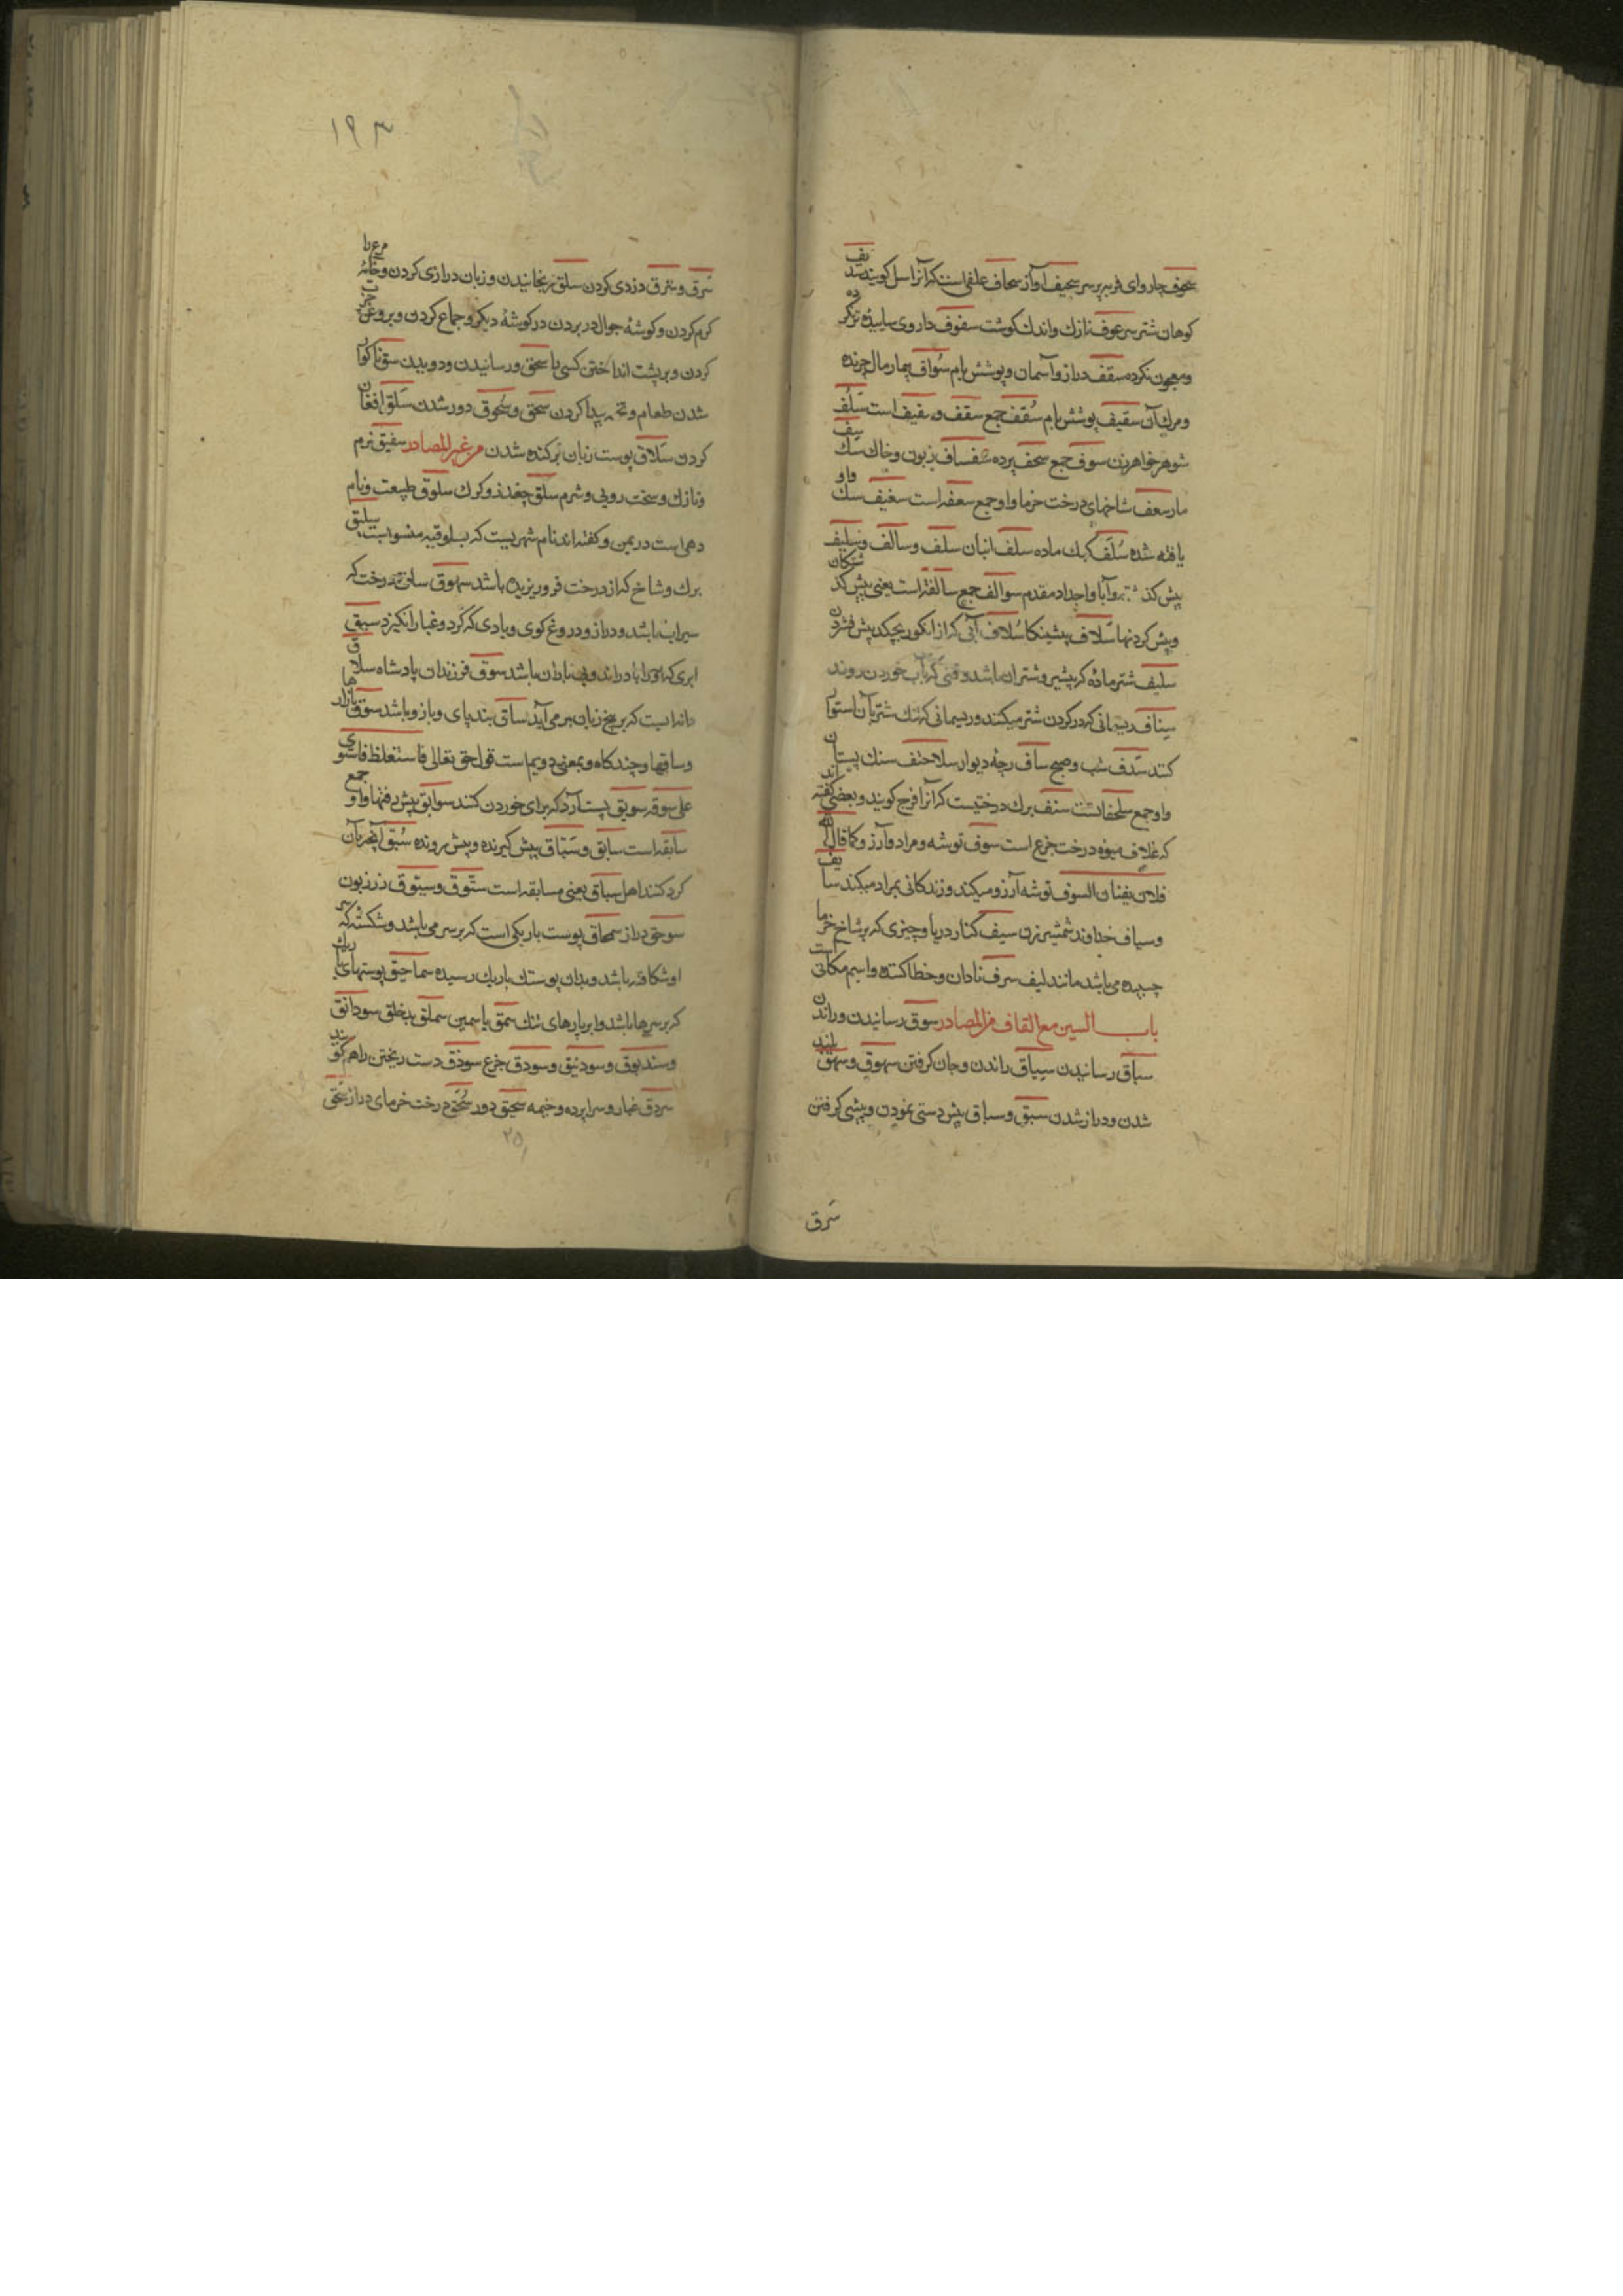 سحوف چاروای فربه پرسر سحیف آواز سحاف علفی است که آنرا اسل کویند سدیف
کوهان شتر سرعوف نازك واندك کوشت سفوف داروی ساییده ترکرده
ومعجون نکرده سقف دراز وآسمان وپوشش بام سُواف بیمار مال چرنده
ومرك آن سقیف پوشش بام سُقف جمع سقف و سقیف است سَلف
شوهر خواهر زن سوف جمع سحف پرده سفساف زبون وخاك سیف
مار سعف شاخهای درخت خرما واو جمع سعفه است سغیف
یافته شده سُلَف کبك ماده سلف انبان سلف وسالف وسلیف
پیش کذشته وآبا واجداد مقدم سوالف جمع سالفه است یعنی پیش کذشتکان
وپیش کردنها سَلاف پیشینکان سُلاف آبی که از انکور بچکد پیش فشردن
سلیف شتر ماده که پیشرو شتران باشد وقتی که بآب خوردن روند
سِناف ریسمانی که در کردن شتر میکنند وریسمانی که تنك شتر بآن استوار
کنند سَدَف شب وصبح ساف رجه دیوار سلاحتف سنك پستان
واو جمع سلحفاتست سنف برك درختیست که آنرا مرخ کویند وبعضی کفته اند
که غلاف میوه درخت مرخ است سوف توشه ومراد وآرزو کما قال الله
فلان یقتات السوف توشه آرزو میکند وزندکانی بمراد میکند سایف
وسیاف خداوند شمشیر زن سیف کنار دریا وچیزی که بر شاخ خرما
چسپیده می باشد مانند لیف سرف نادان وخطا کننده واسم مکانی است
باب السین مع القاف من المصادر سوق رسانیدن وراندن
سیاق رسانیدن سِیاق راندن وجان کرفتن سهوق وسهق بلند
شدن ودراز شدن سبق وسباق پیش دستی نمودن وپیشی کرفتن
سَرق
۱۹۳
سَرق وسَرِق دزدی کردن سلق رنجانیدن وزبان درازی کردن وخایه مرغ را
کرم کردن وکوشه جوال در بردن در کوشه دیکر وجماع کردن وبروغن چرب
کردن وبر پشت انداختن کسی را سحق ورسانیدن ودویدن سنق ناکوار
شدن طعام وتخمه پیدا کردن سحق وسُحوق دور شدن سَلق افغان
کردن سَلاق پوست زبان برکنده شدن من غیر المصادر سفیق نرم
ونازك وسخت رویی وشرم سلق چغندر وکرك سلوق طبیعت ونام
دهی است در یمن وکفته اند نام شهریست که بسلوقیه منسوبست سلیق
برك وشاخ که از درخت فرو ریزیده باشد سهوق ساق تنه درخت که
سیراب باشد ودراز ودروغ کوی وبادی که کرد وغبار انکیزد سیق
ابری که هوا بادراند وبی باران باشد سوق فرزندان پادشاه سلاق
دانه ایست که بر بیخ زبان بر می آید ساق بند پای وباز وباشد سوق بازارها
وساقها وچندکاه وبمعنی دویم است قول حق تعالی فاستغلظ فاستوی
علی سوقه سویق پست آرد که برای خوردن کنند سوابق پیش رفتنها واو جمع
سابقه است سابق وسَبّاق پیش کیرنده وپیش رونده سُبق آنچه بآن
کرو کنند اهل سباق یعنی مسابقه است سَتّوق وستوق زر زبون
سوحق دراز سمحاق پوست باریکی است که بر سر می باشد وشکستکی که بر
او شکافته باشد وبدان پوستك باریك رسیده سماحیق پوستهای باریك
که بر سرها باشد وابر پارهای تنك سمق یاسمین سملق بدخلق سودانق
وسندبوق وسودنیق وسودق چرغ سوذق دست رنجن را هم کویند
سردق غبار وسراپرده وخیمه سحیق دور سُحق درخت خرمای دراز
۲۵